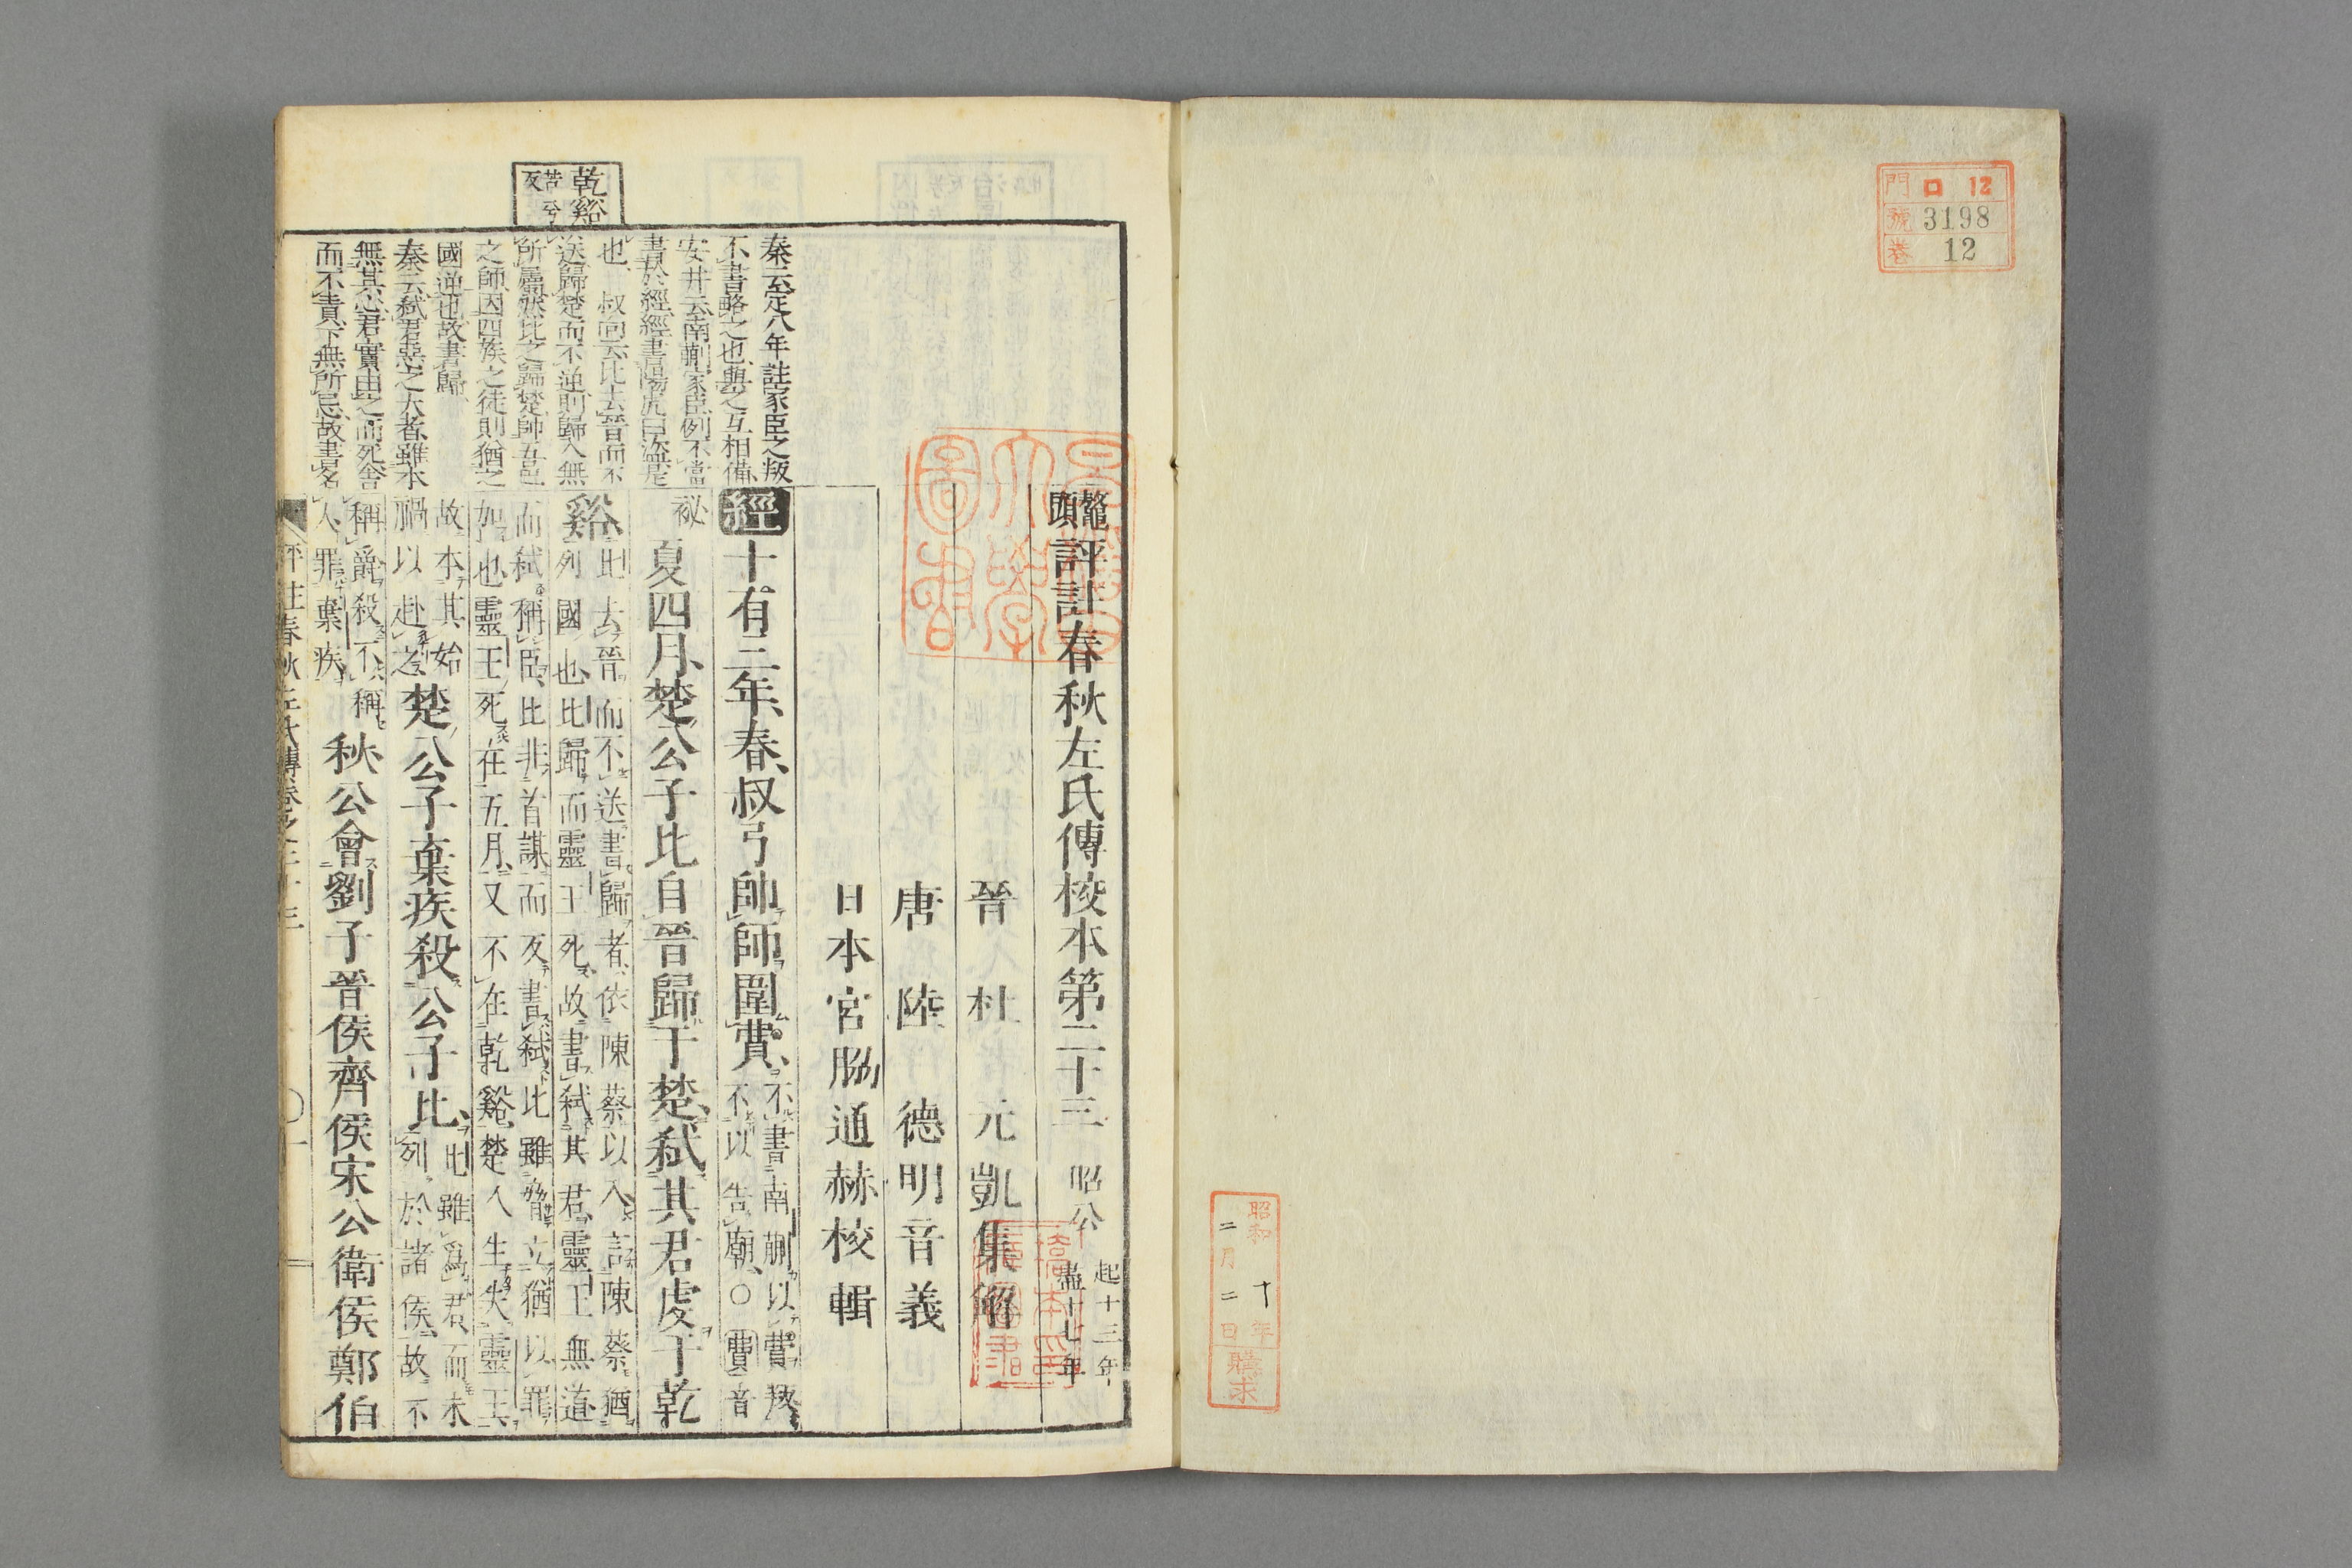 門 口 12
號 3198
卷 12
昭和十年
二月二日購求
鼇頭評註春秋左氏傳校本第二十三 昭公 起十三年 盡十七年
晉 杜 元 凱 集 解
唐 陸 德 明 音 義
日本 宮脇通赫 校輯
經十有三年、春、叔弓帥師圍費、不書南蒯以費叛不以告廟、○費音
祕 夏四月、楚公子比自晉歸于楚、弑其君虔于乾
谿比去晉而不送書歸者、依陳蔡以入言陳蔡猶列國也比歸而靈王死、故書弑其君、靈王無道
而弑稱臣、比非首謀而反書弑、比雖脅立猶以罪
如也、靈王死在五月、又不在乾谿、楚人生失靈王、
故本其始禍以赴之、楚公子棄疾殺公子比、比雖爲君、而未列於諸侯、故不
稱爵、殺不稱人、罪棄疾、秋公會劉子晉侯齊侯宋公衛侯鄭伯
乾谿 苦兮反
秦云定八年註家臣之叛
不書略之也、與之互相備、
安井云南蒯家臣、例不當
書於經、經書陽虎曰盜是
也、 叔向云比去晉而不
送歸楚而不逆則歸入無
所屬然比之歸楚帥五邑
之師、因四族之徒則猶之
國逆也、故書歸、
秦云弑君惡之大者、雖本
無其心、君實由之而死、舍
而不責、下無所忌、故書名
評註春秋左氏傳卷之二十三
○一